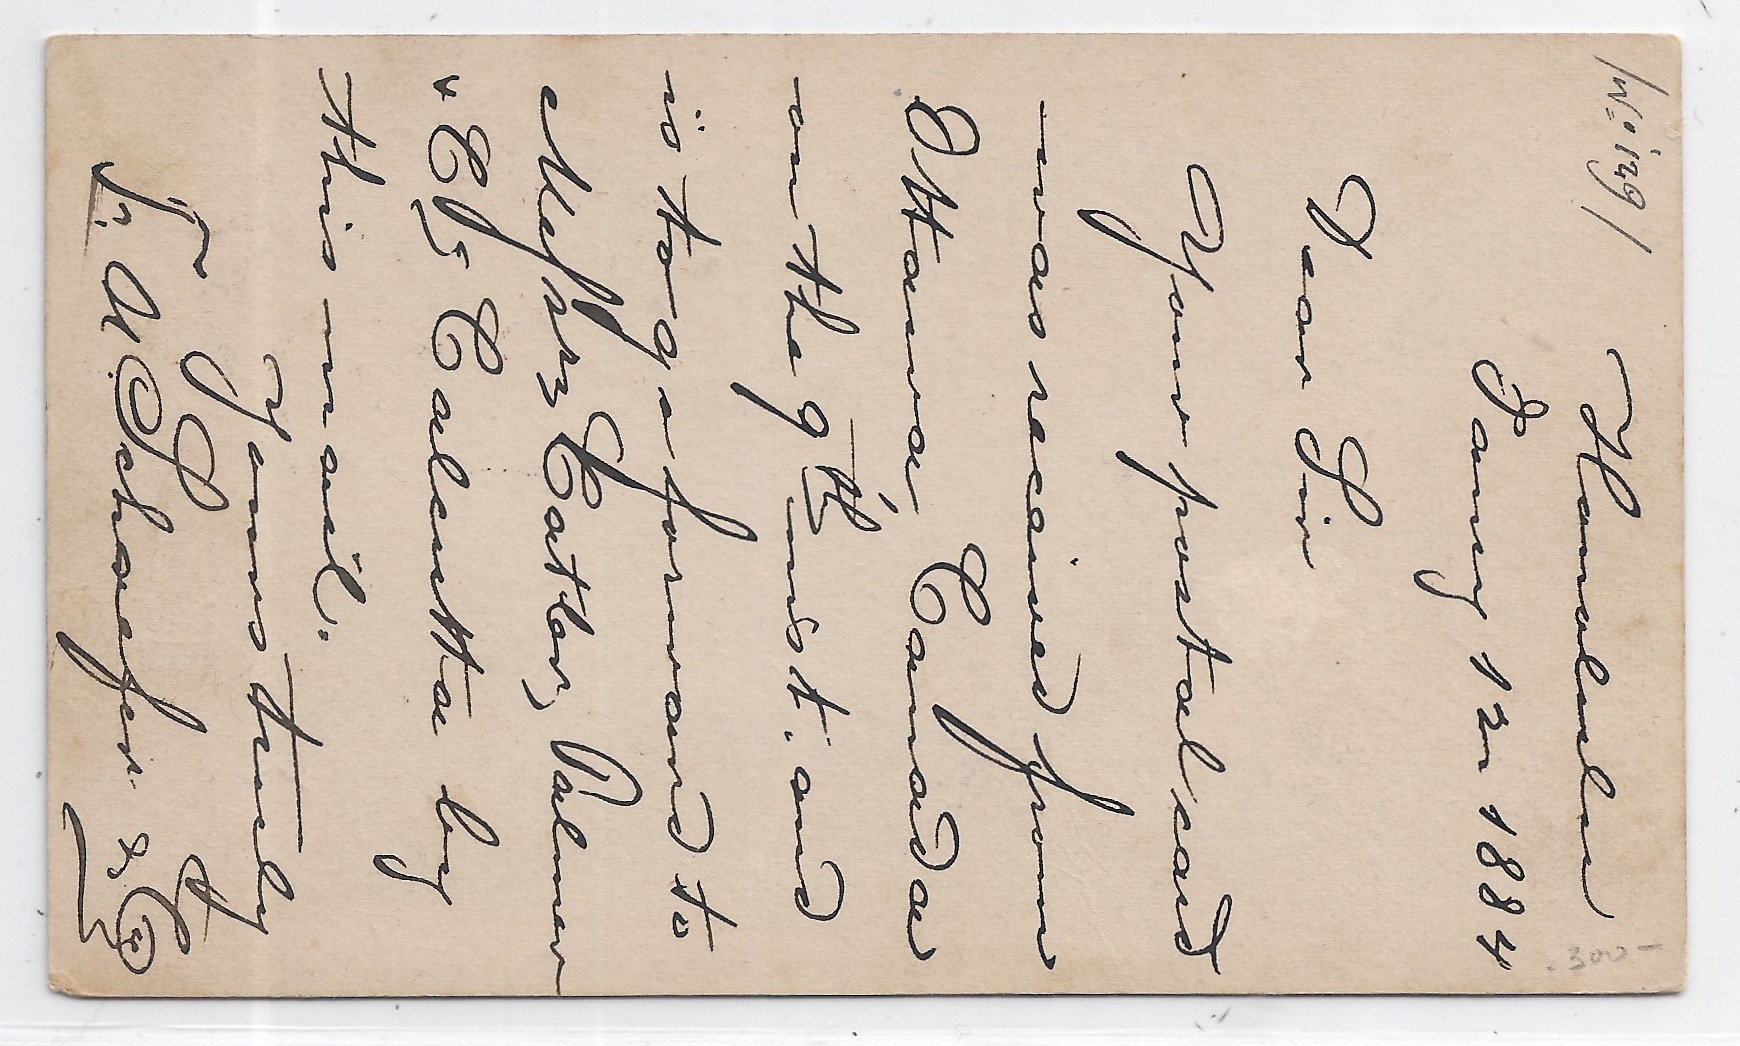 Honolulu
Jany 12n 1884
Dear Sir
Your postal card
was received from
Ottawa, Canada
on the 9th inst. and
is to go forward to
Messrs Catlow, Palmer
& Co Calcutta by
this mail.
Yours truly
F. A. Schaefer & Co
300-